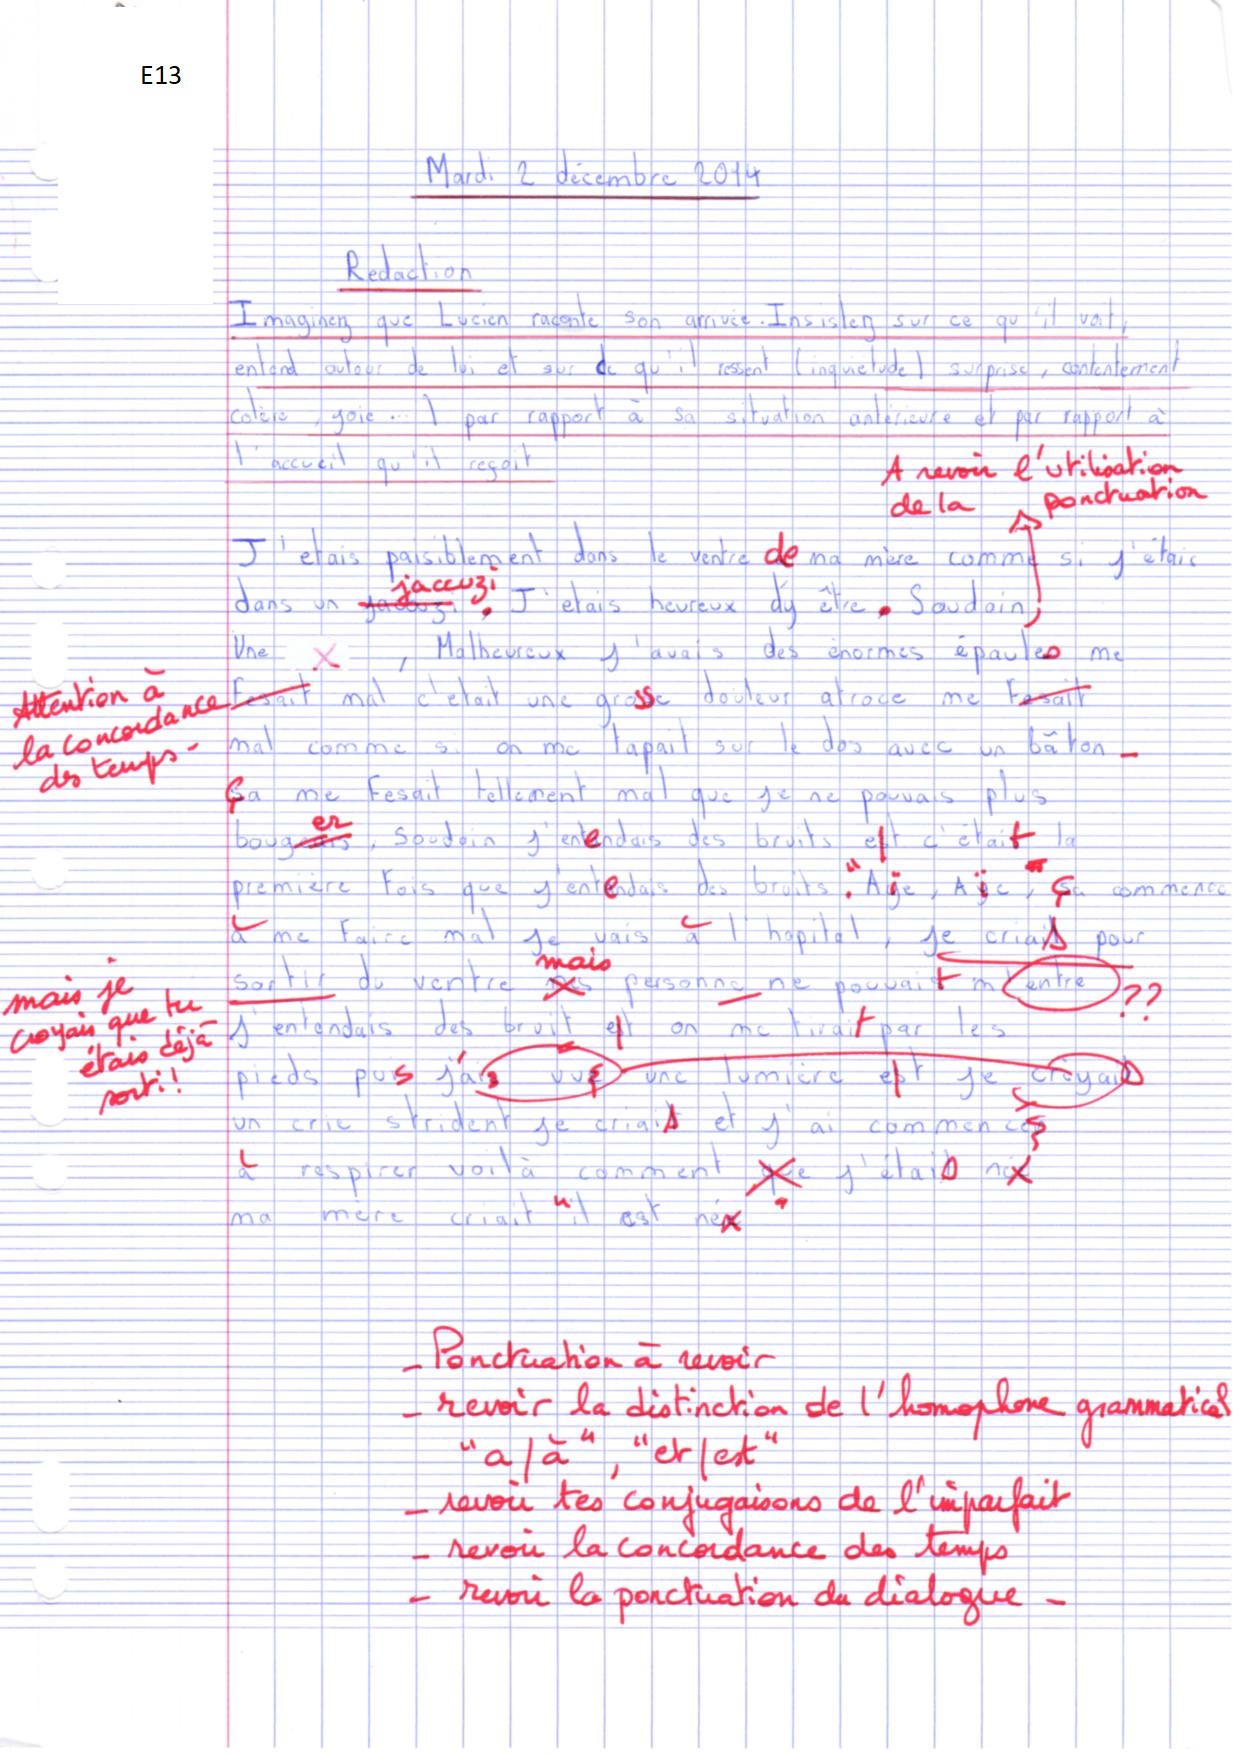 E13
Mardi 2 décembre 2014
Redaction
Imaginez que Lucien raconte son arrivée. Insistez sur ce qu'il voit,
entend autour de lui et sur ce qu'il ressent (inquietude) surprise, contentement
colère, joie...) par rapport à sa situation antérieure et par rapport à
l'accueil qu'il reçoit
A revoir l'utilisation
de la ponctuation
J'etais paisiblement dans le ventre de ma mère comme si j'étais
jaccuzi
dans un . J'etais heureux d'y être. Soudain,
Une X , Malheureux j'avais des énormes épaules me
Attention à
la concordance
des temps -
Fesait mal c'etait une grosse douleur atroce me Fesait
mal comme si on me tapait sur le dos avec un bâton -
Ça me Fesait tellement mal que je ne pouvais plus
er
bougeais, Soudain j'entendais des bruits et c'était la
première Fois que j'entendais des bruits. "Aïe, Aïe", ça commence
à me Faire mal je vais à l'hopital, je criais pour
mais
sortir du ventre mes personne ne pouvait m'entre ??
mais je
croyais que tu
étais déjà
sorti!
j'entendais des bruit et on me tirait par les
pieds puis j'ai vue une lumière et je croyais
un crie strident je criais et j'ai commencé
à respirer voilà comment que j'étais né
ma mère criait "il est né"
- Ponctuation à revoir
- revoir la distinction de l'homophone grammatical
"a/à", "et/est"
- revoir tes conjugaisons de l'imparfait
- revoir la concordance des temps
- revoir la ponctuation du dialogue -